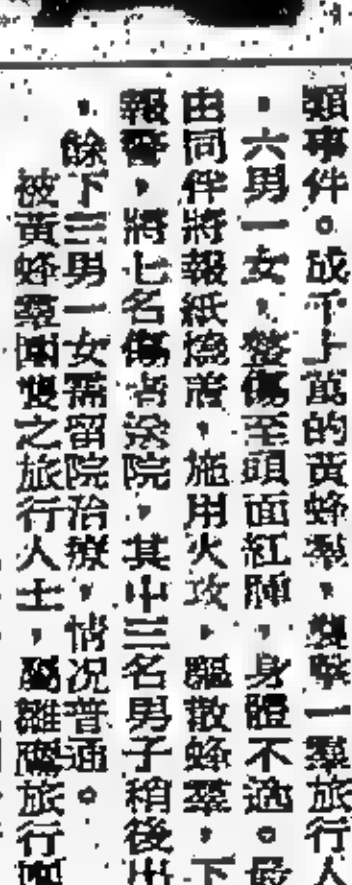 類事件。成千上萬的黃蜂羣,襲擊一羣旅行人
,六男一女,螫傷至頭面紅腫,身體不適。最
由同伴將報紙燒着,施用火攻,驅散蜂羣,下
報警,將七名傷者送院,其中三名男子稍後出
,餘下三男一女需留院治療,情况普通。
被黃蜂羣圍襲之旅行人士,屬雛鷹旅行團